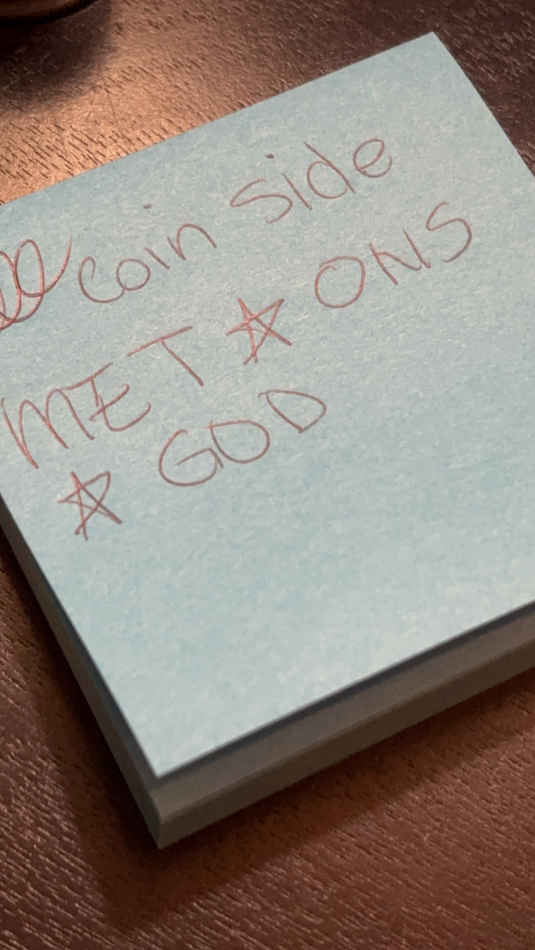 coin side
MET ☆ ONS
☆ GOD